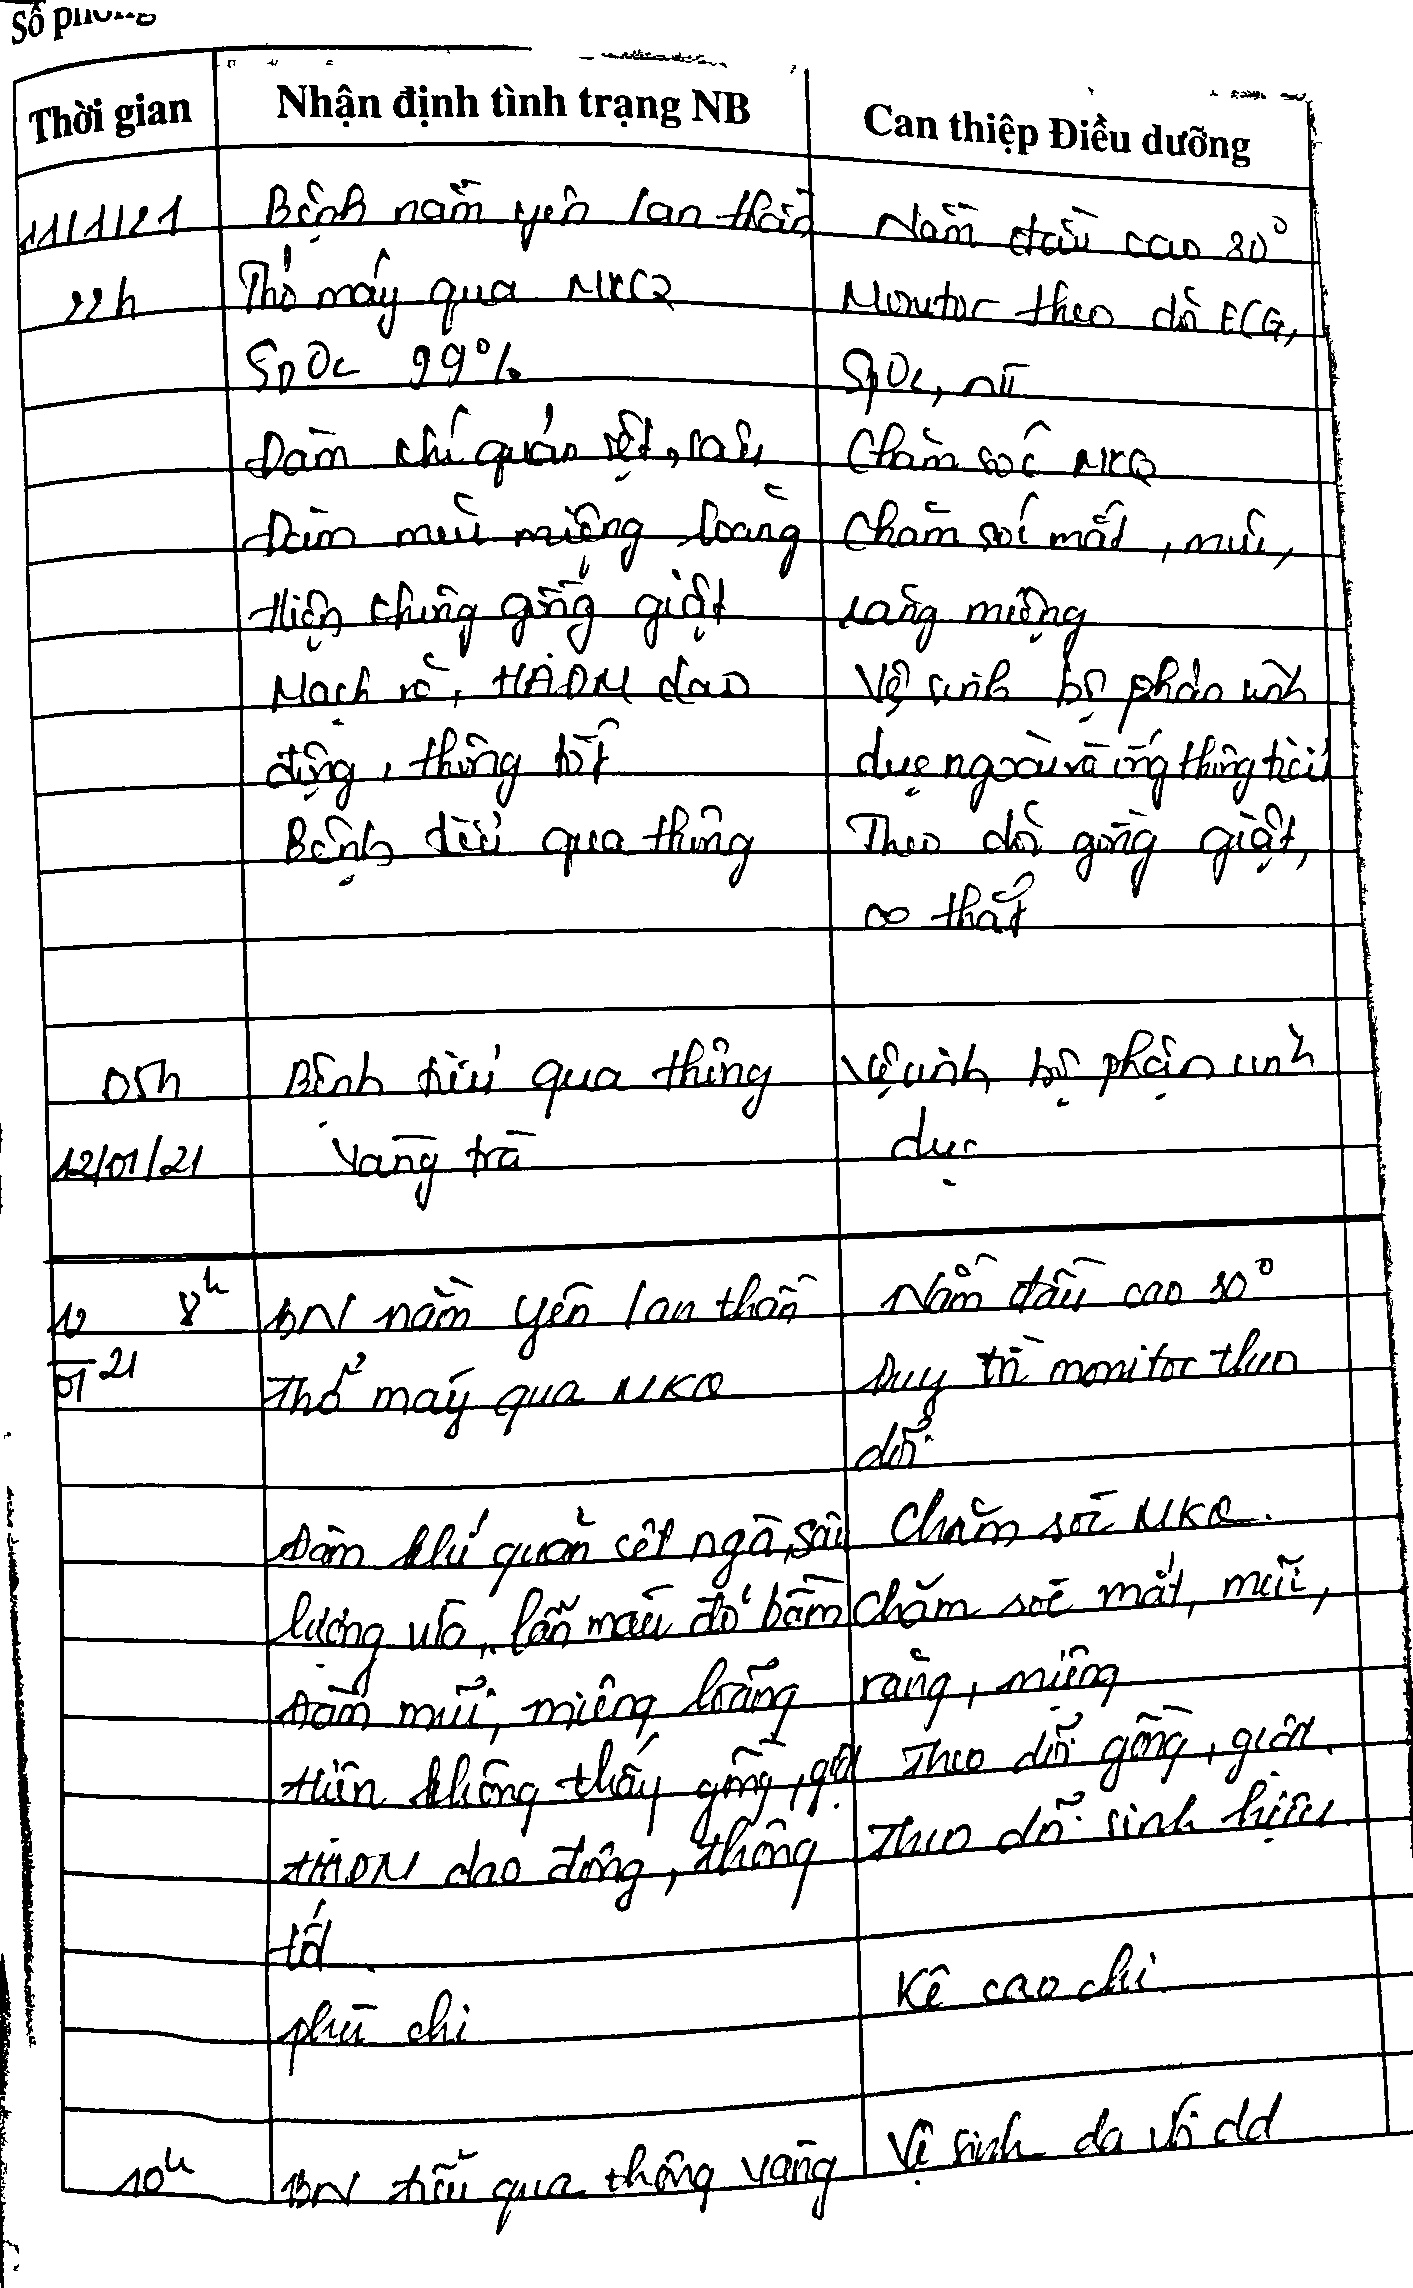 Số phòng
Thời gian
Nhận định tình trạng NB
Can thiệp Điều dưỡng
11/1/21
Bệnh nằm yên lan thần
Nằm đầu cao 30°
22h
Thở máy qua MKQ
Monitor theo dõi ECG,
SpO2 99%
SpO2,
Đàm khí quản sệt, nâu
Chăm sóc MKQ
Đàm mũi miệng loãng
Chăm sóc mắt, mũi,
Hiện không gồng giật
răng miệng
Mạch rõ, HAĐM dao
Vệ sinh bộ phận sinh
động, thông tốt
dục ngoài và ống thông tiểu
Bệnh tiểu qua thông
Theo dõi gồng giật,
co thắt
05h
Bệnh tiểu qua thông
Vệ sinh bộ phận sinh
12/01/21
vàng trà
dục
8h
BN nằm yên lan thần
Nằm đầu cao 30°
12/01 21
Thở máy qua MKQ
Duy trì monitor theo
dõi
Đàm khí quản sệt ngà, sâu
Chăm sóc MKQ.
lượng vừa, lẫn máu đỏ bầm
Chăm sóc mắt, mũi,
Đàm mũi, miệng loãng
răng, miệng
Hiện không thấy gồng, giật
Theo dõi gồng, giật.
HAĐM dao động, thông
Theo dõi sinh hiệu.
tốt
Kê cao chi.
phù chi
10h
BN tiểu qua thông vàng
Vệ sinh da